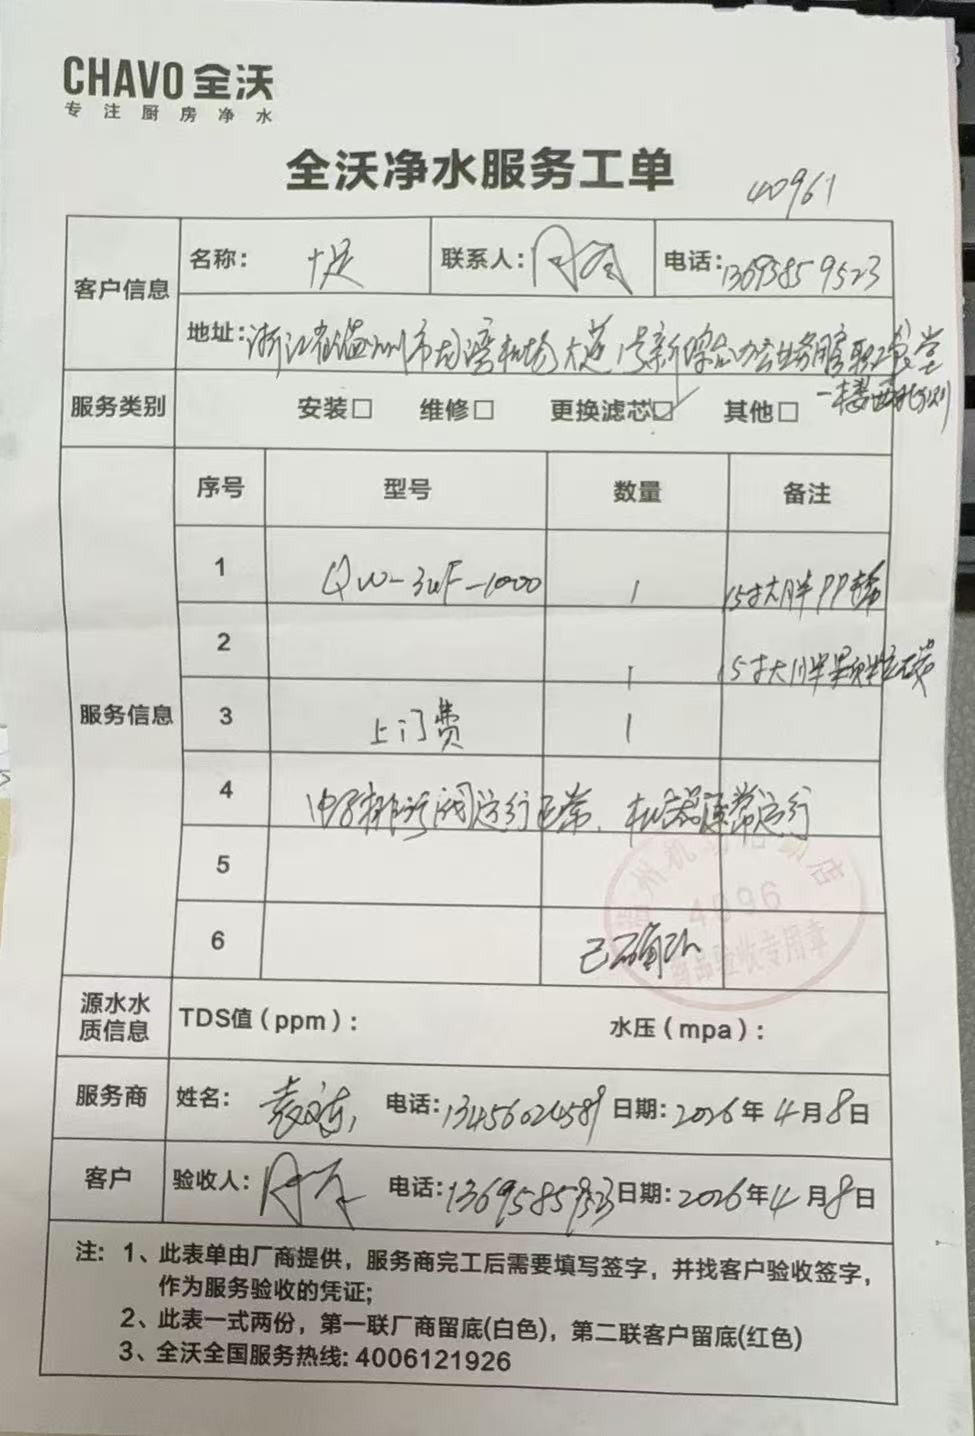 CHAVO 全沃
专注厨房净水
全沃净水服务工单
40961
客户信息 名称： 联系人： 电话：13695859523
地址：浙江省温州市龙湾机场大道1号新综合办公业务用房职工食堂
一楼西北侧
服务类别 安装□ 维修□ 更换滤芯☑ 其他□
服务信息 序号 型号 数量 备注
1 QW-3UF-1000 1 15寸大胖PP棉
2 1 15寸大胖颗粒碳
3 上门费 1
4 电子排污阀运行正常、机器正常运行
5
6 已确认
温州机场 店
4096
商品验收专用章
源水水质信息 TDS值（ppm）： 水压（mpa）：
服务商 姓名： 电话：13456024589 日期：2026年4月8日
客户 验收人： 电话：13695859523 日期：2026年4月8日
注： 1、此表单由厂商提供，服务商完工后需要填写签字，并找客户验收签字，
作为服务验收的凭证；
2、此表一式两份，第一联厂商留底(白色)，第二联客户留底(红色)
3、全沃全国服务热线：4006121926